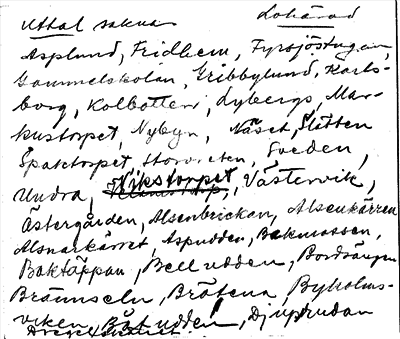 Uttal saknas Lohärad
Asplund, Fridhem, Fyrsjöstugan,
Gammelskolan, Gribbylund, Karls-
borg, Kolbotten, Lybergs, Mar-
kustorpet, Nybyn, Näset, Slätten
Spaktorpet, Storreten, Sveden,
Undra, Vikstorpet, Västervik,
Östergården, Alsenbrickan, Alsenkärren
Alsnarkärret, Aspudden, Bakmossen,
Baktäppan, Belludden, Bordsängen
Brännseln, Bråtena, Byholms-
viken, Båtudden, Djuprudan